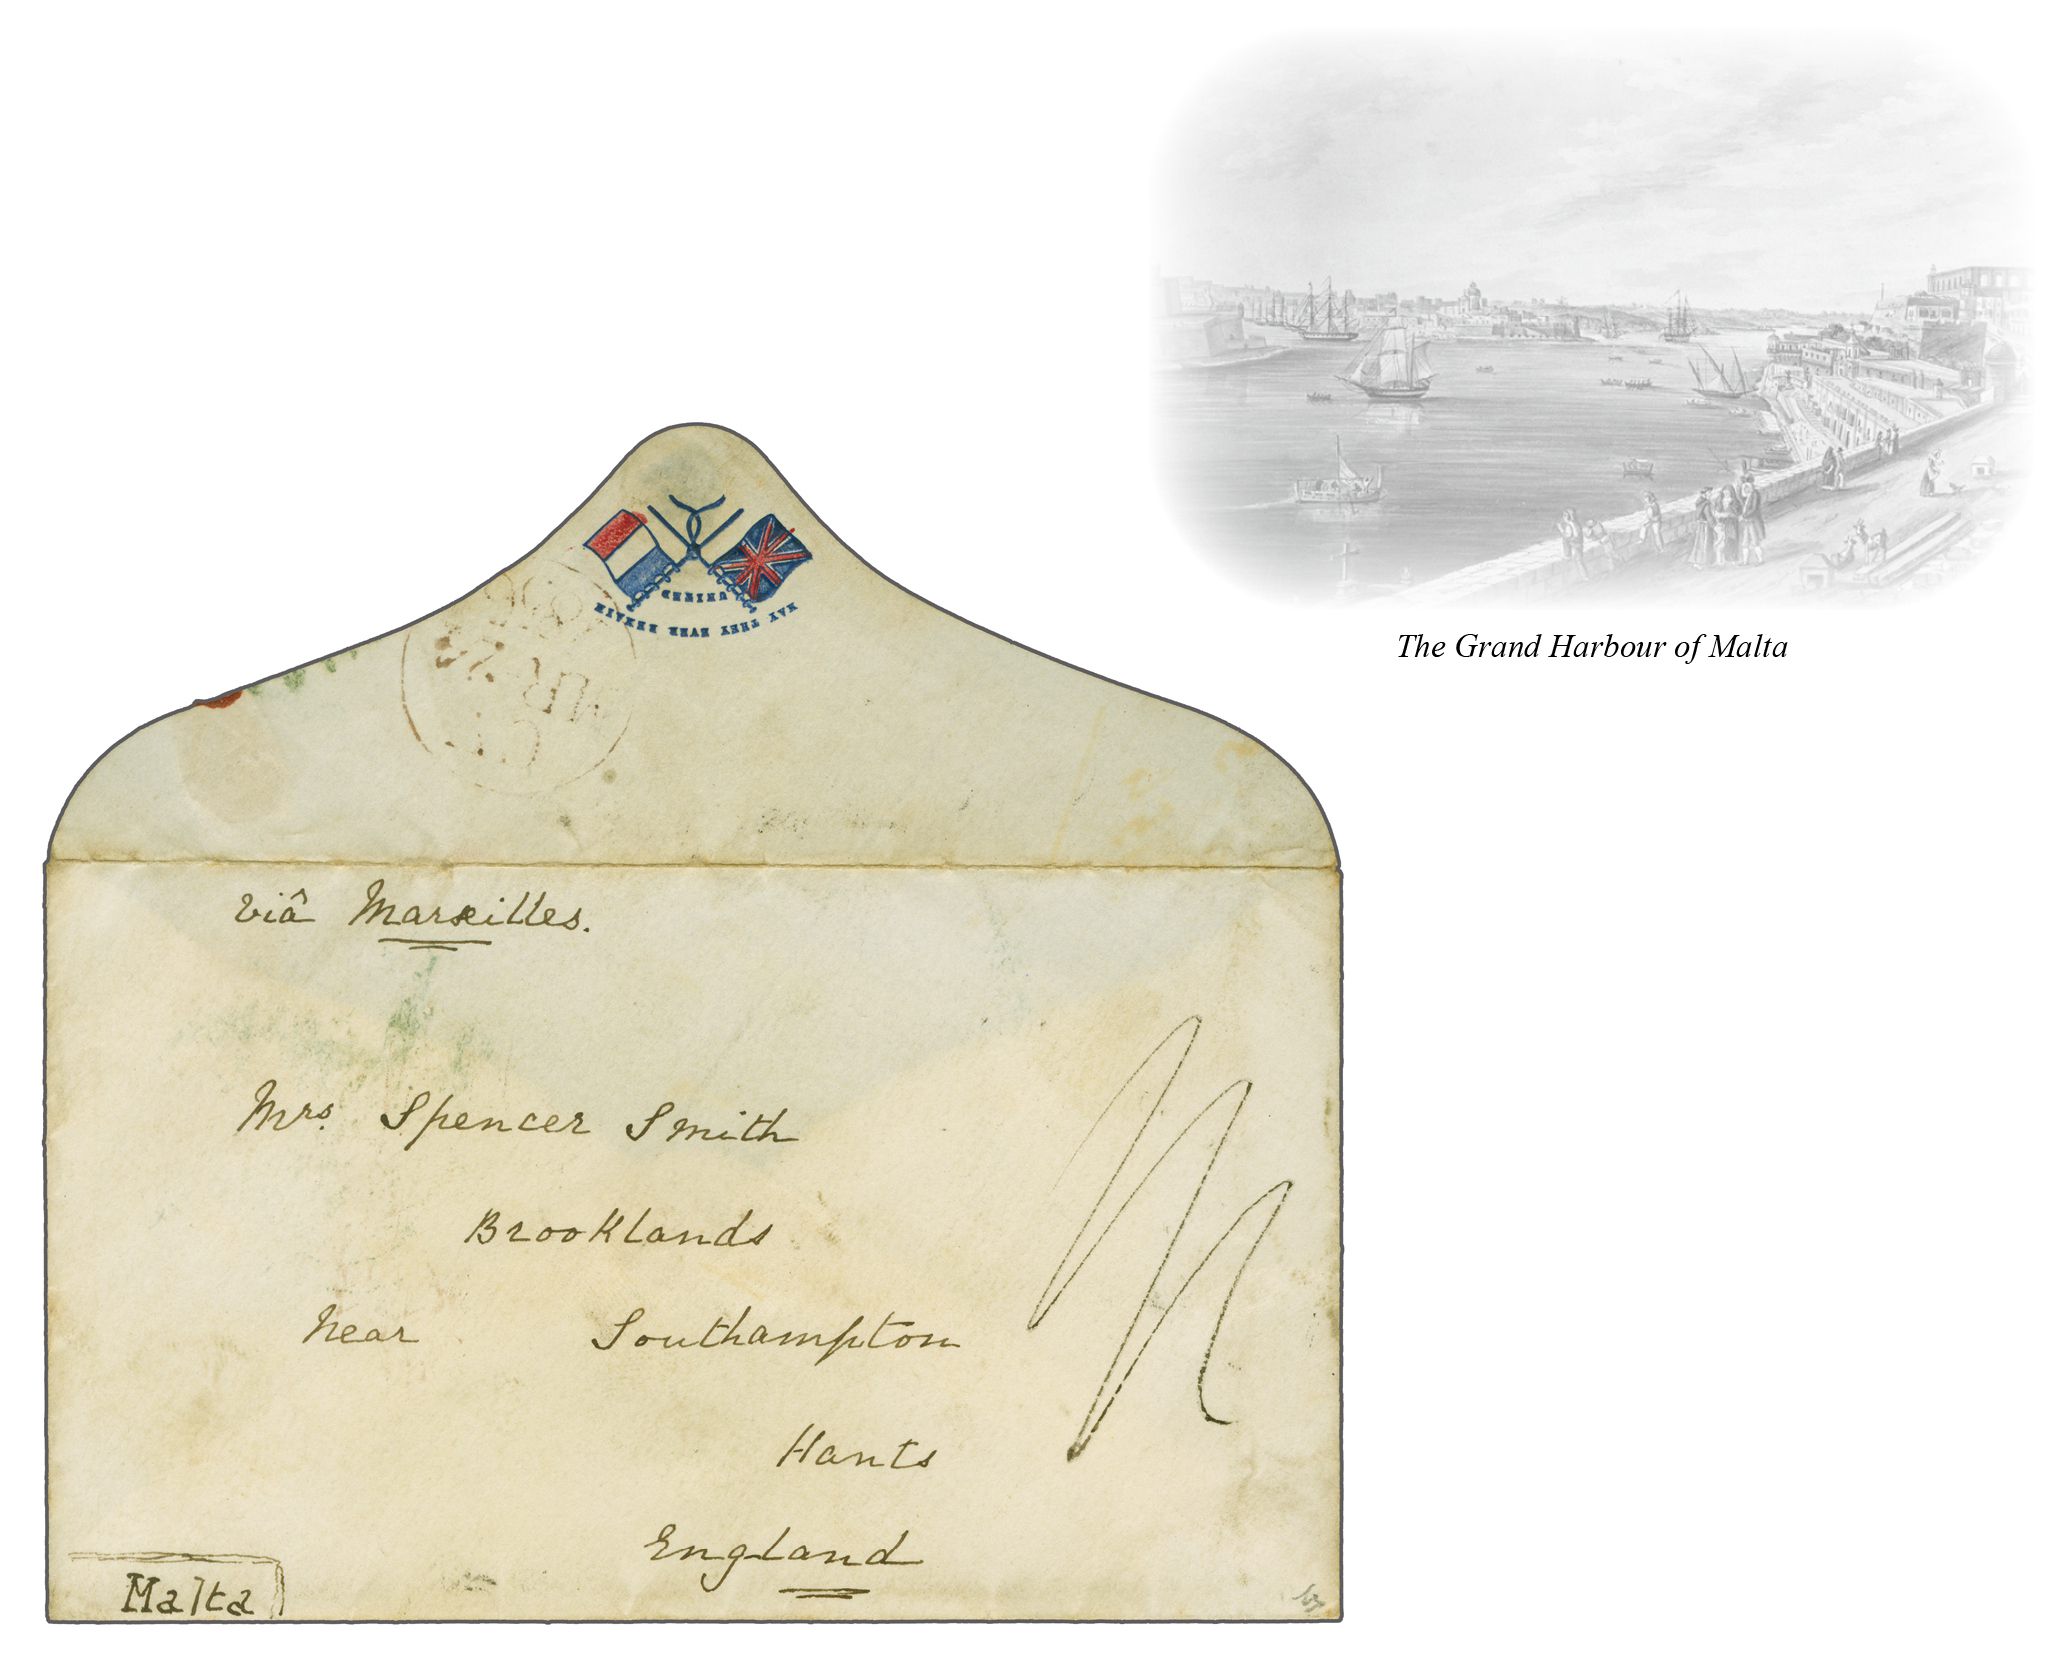 The Grand Harbour of Malta
UNITED
MAY THEY EVER REMAIN
viâ Marseilles.
Mrs. Spencer Smith
Brooklands
Near Southampton
Hants
England
Malta